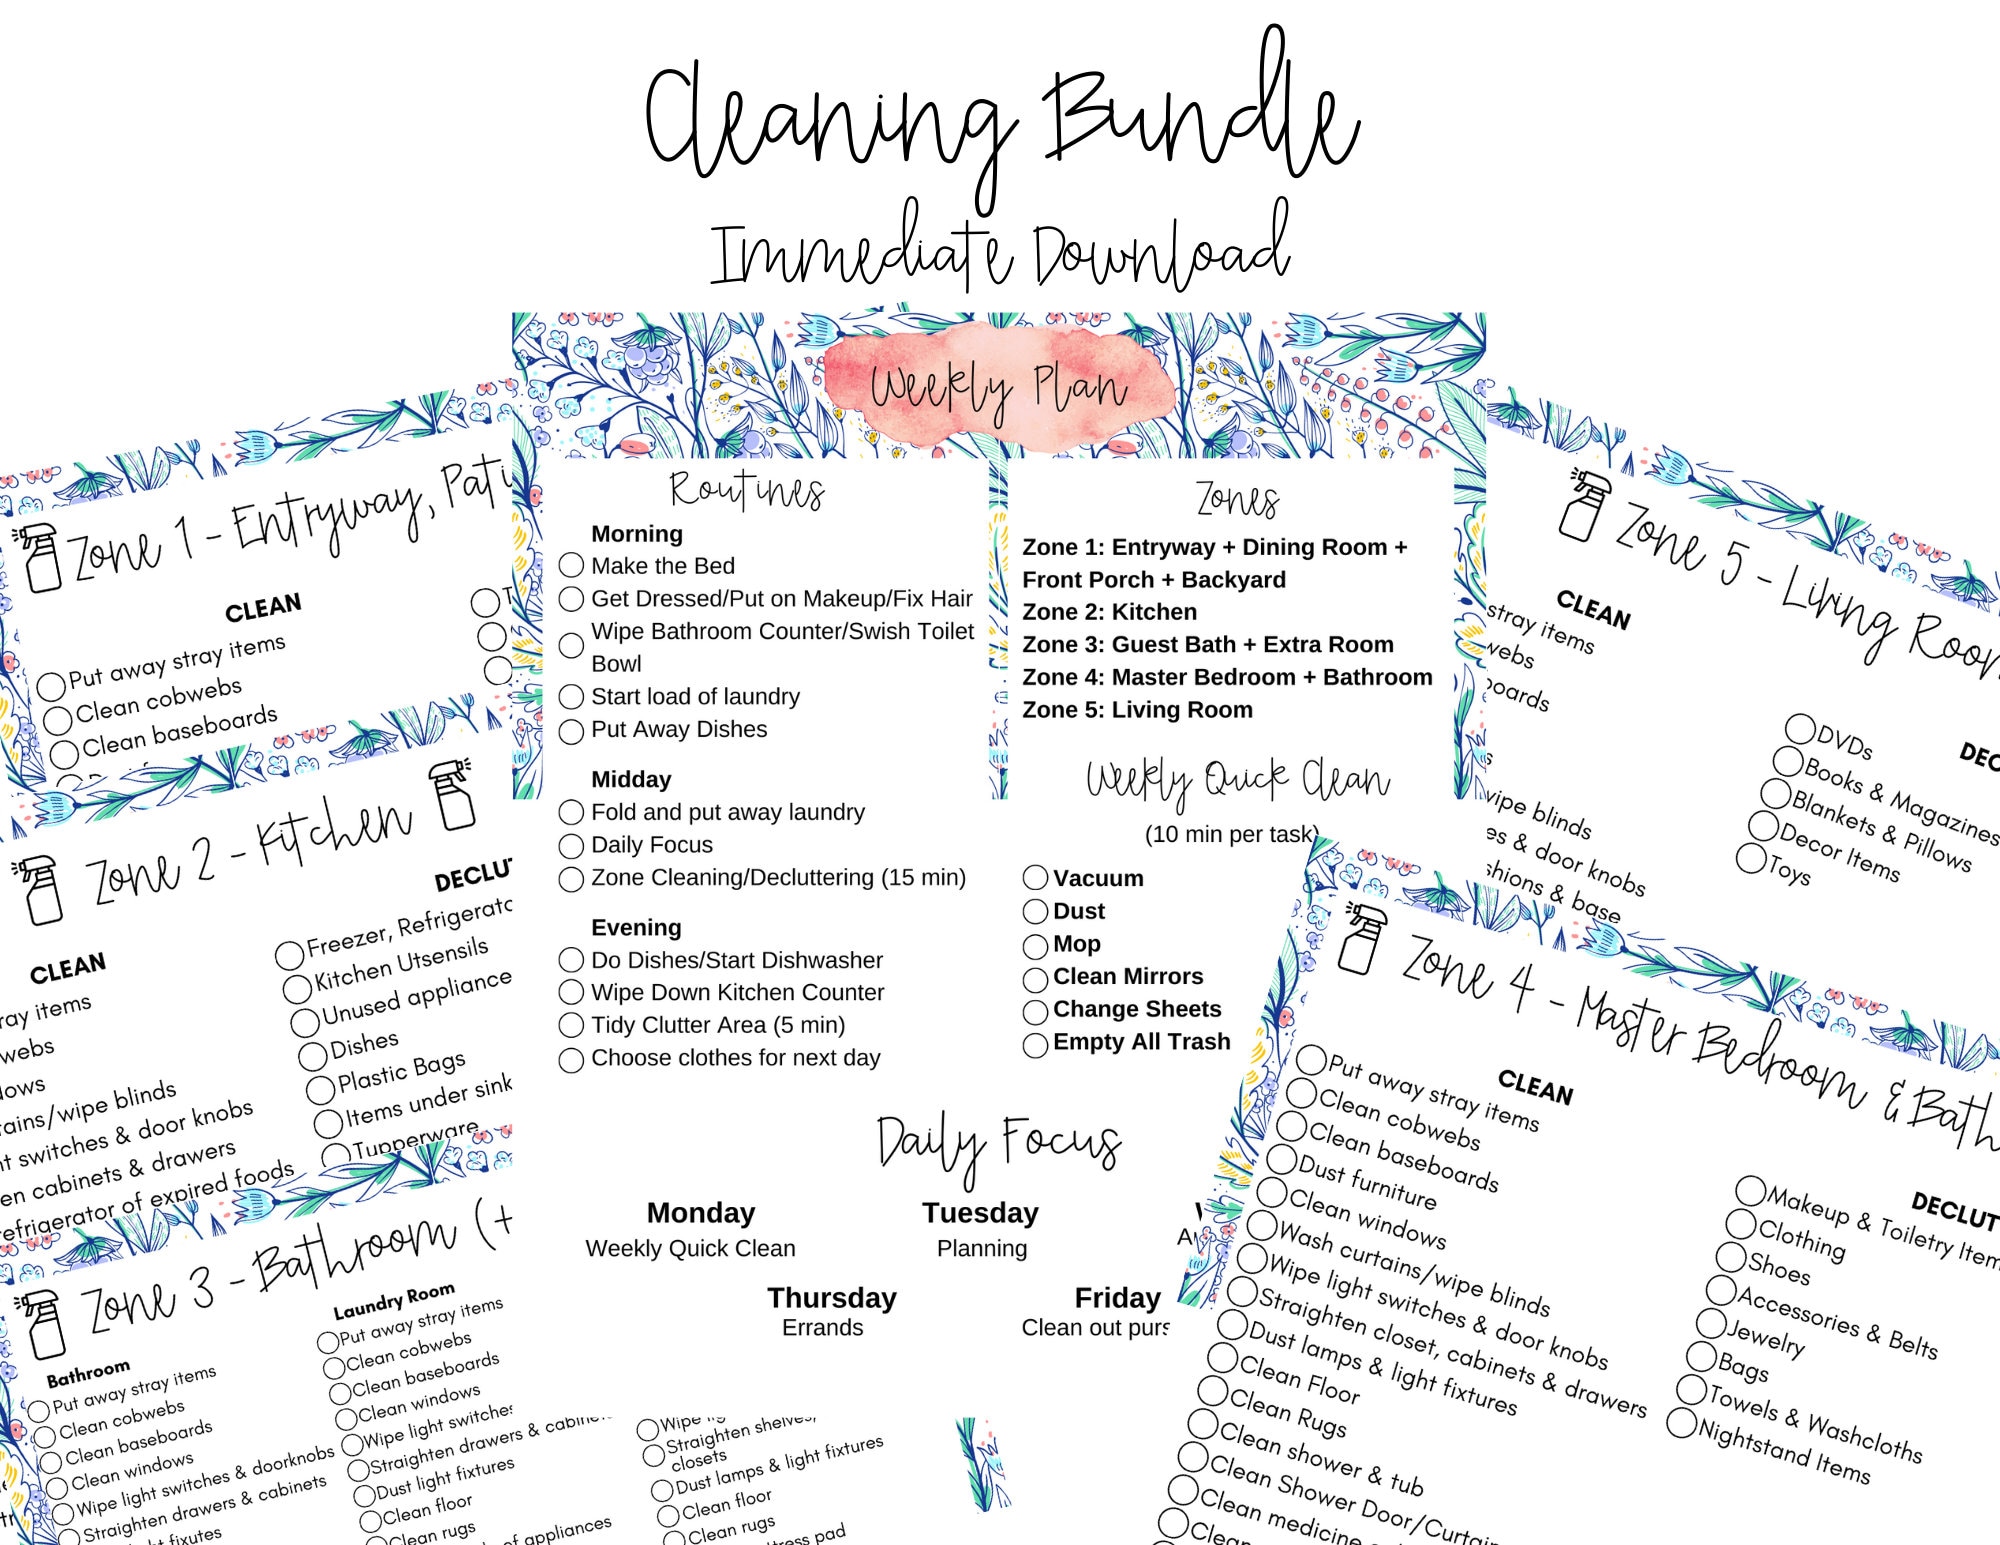 Cleaning Bundle
Immediate Download
Weekly Plan
Routines
Morning
Make the Bed
Get Dressed/Put on Makeup/Fix Hair
Wipe Bathroom Counter/Swish Toilet
Bowl
Start load of laundry
Put Away Dishes
Midday
Fold and put away laundry
Daily Focus
Zone Cleaning/Decluttering (15 min)
Evening
Do Dishes/Start Dishwasher
Wipe Down Kitchen Counter
Tidy Clutter Area (5 min)
Choose clothes for next day
Zones
Zone 1: Entryway + Dining Room +
Front Porch + Backyard
Zone 2: Kitchen
Zone 3: Guest Bath + Extra Room
Zone 4: Master Bedroom + Bathroom
Zone 5: Living Room
Weekly Quick Clean
(10 min per task)
Vacuum
Dust
Mop
Clean Mirrors
Change Sheets
Empty All Trash
Daily Focus
Monday
Weekly Quick Clean
Tuesday
Planning
Thursday
Errands
Friday
Clean out
Zone 1 - Entryway,
CLEAN
Put away stray items
Clean cobwebs
Clean baseboards
Zone 2 - Kitchen
CLEAN
items
blinds
switches & door knobs
cabinets & drawers
of expired foods
Freezer,
Kitchen Utsensils
Unused
Dishes
Plastic Bags
Items under sink
Tupperware
Zone 3 - Bathroom (+
Bathroom
Put away stray items
Clean cobwebs
Clean baseboards
Clean windows
Wipe light switches & doorknobs
Straighten drawers & cabinets
fixutes
Laundry Room
Put away stray items
Clean cobwebs
Clean baseboards
Clean windows
Wipe light switches
Straighten drawers &
Dust light fixtures
Clean floor
Clean rugs
of appliances
Wipe
Straighten shelves,
closets
Dust lamps & light fixtures
Clean floor
Clean rugs
pad
Zone 5 - Living
CLEAN
stray items
wipe blinds
& door knobs
& base
DVDs
Books & Magazines
Blankets & Pillows
Decor Items
Toys
Zone 4 - Master Bedroom & Bath
CLEAN
Put away stray items
Clean cobwebs
Clean baseboards
Dust furniture
Clean windows
Wash curtains/wipe blinds
Wipe light switches & door knobs
Straighten closet, cabinets & drawers
Dust lamps & light fixtures
Clean Floor
Clean Rugs
Clean shower & tub
Clean Shower Door/Curtain
Clean medicine
Clean
Makeup & Toiletry
Clothing
Shoes
Accessories & Belts
Jewelry
Bags
Towels & Washcloths
Nightstand Items